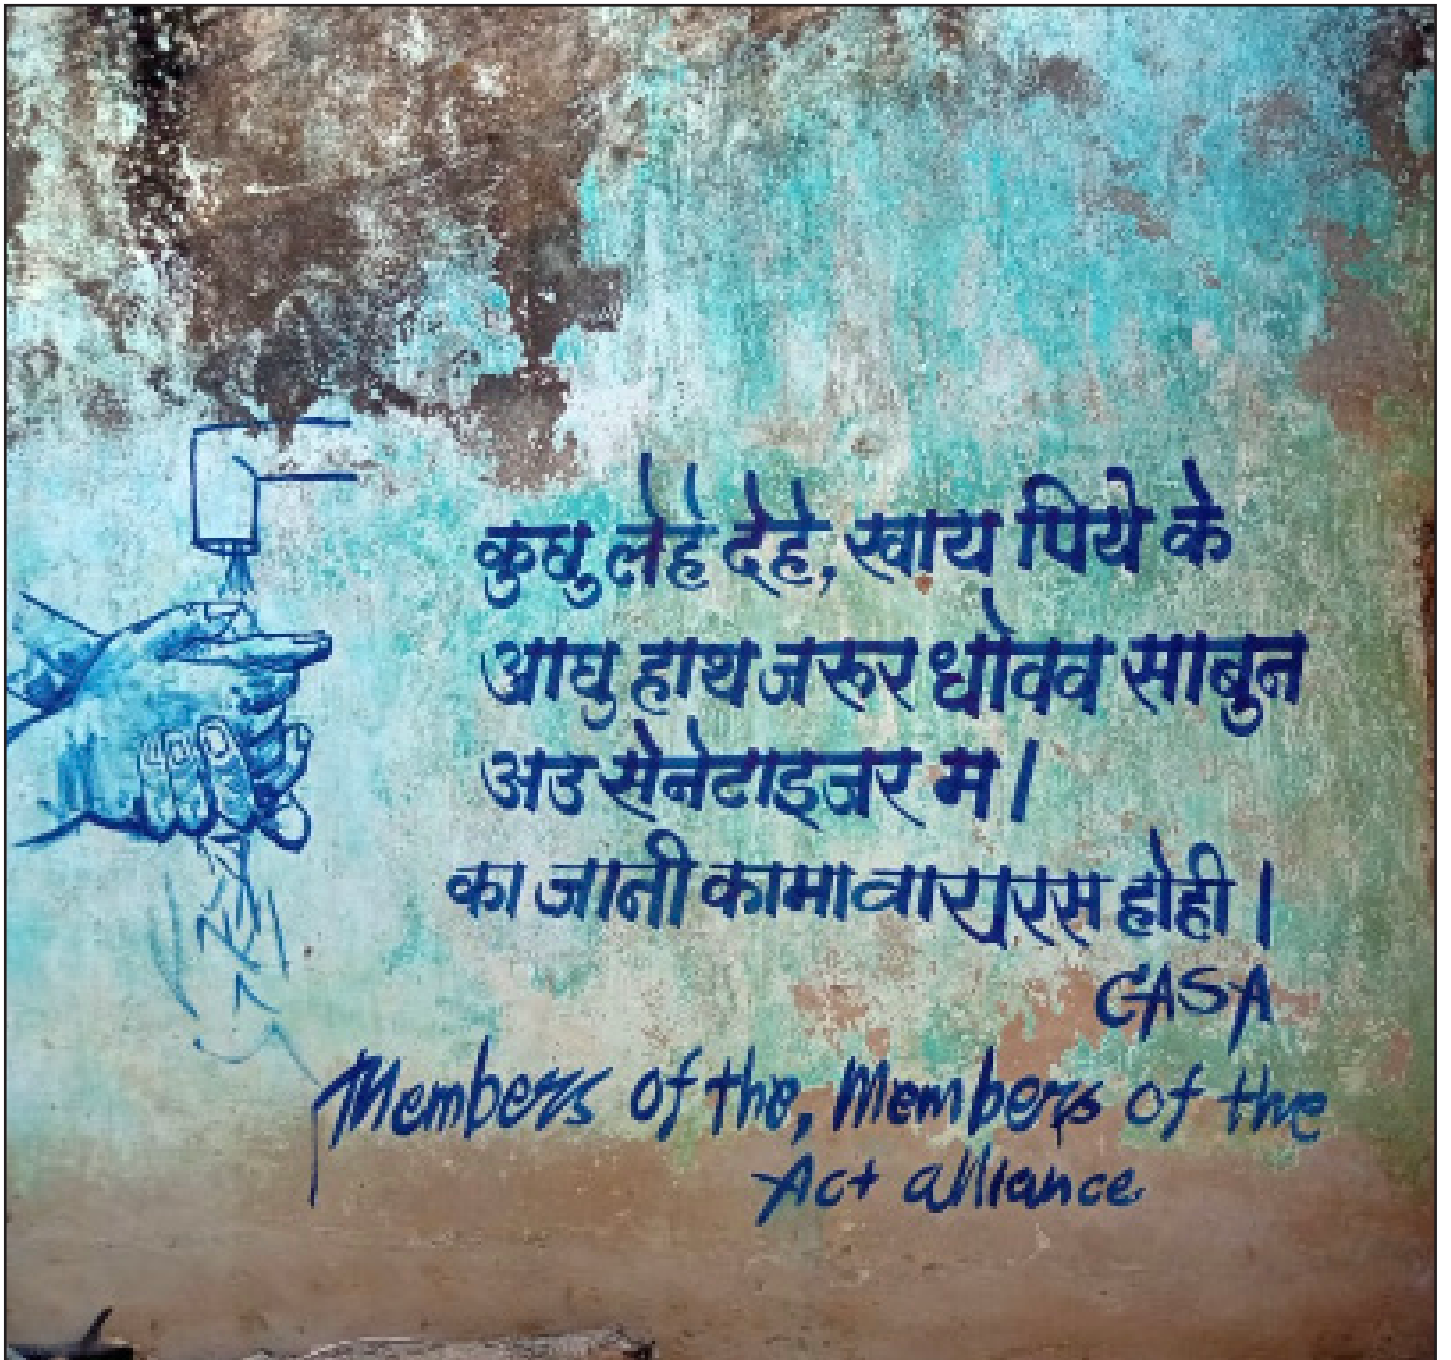 कुघु लेहे देहे, खाय पिये के
आघु हाथ जरूर धोवव साबुन
अउ सेनेटाइजर म।
का जानी कामा वायरस होही।
CASA
Members of the, Members of the
Act alliance